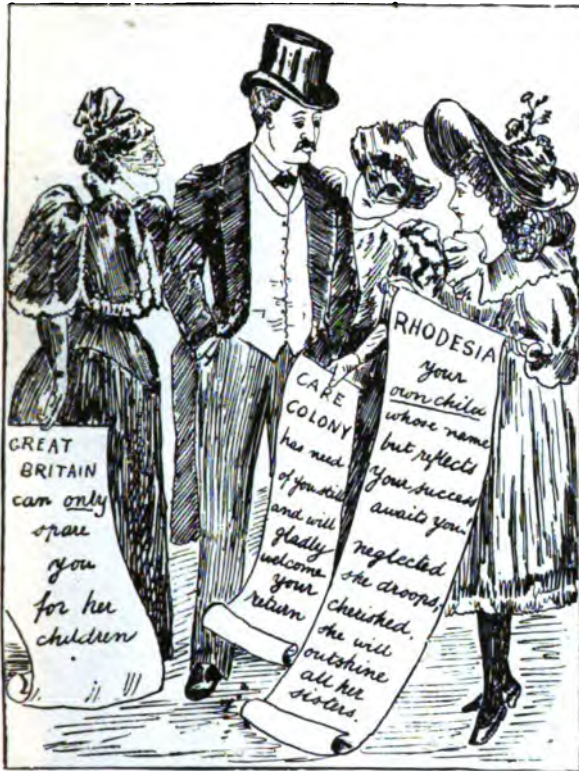 GREAT
BRITAIN
can only
spare
you
for her
children
CAPE
COLONY
has need
of you still
and will
gladly
welcome
your
return
RHODESIA
your
own child
whose name
but reflects
your success
awaits you!
neglected
she droops,
cherished,
she will
outshine
all her
sisters.